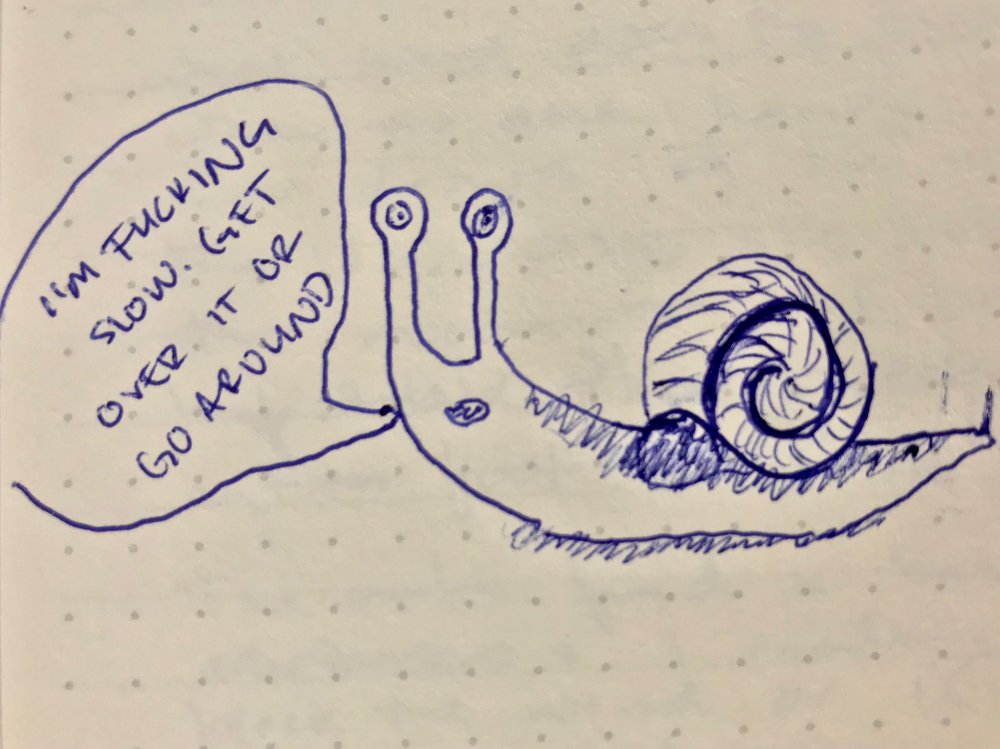 I'M FUCKING
SLOW. GET
OVER IT OR
GO AROUND